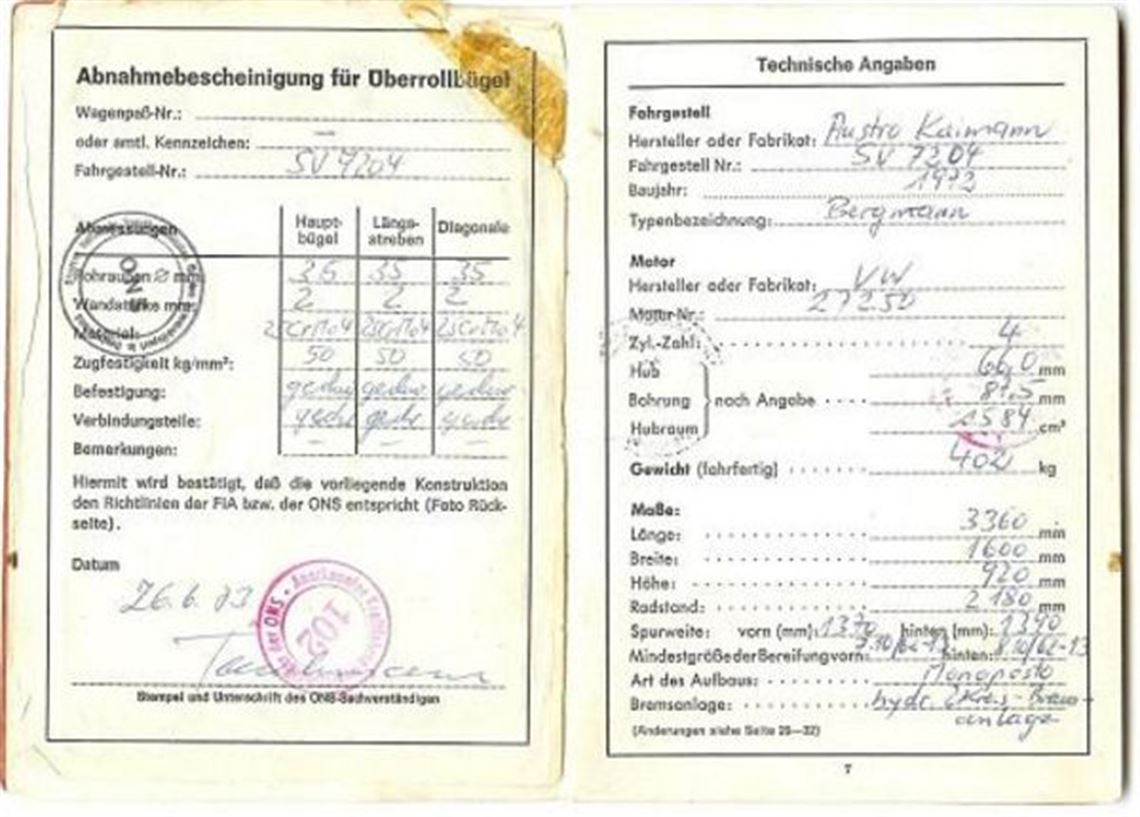 Abnahmebescheinigung für Überrollbügel
Wagenpaß-Nr.:
oder amtl. Kennzeichen: —
Fahrgestell-Nr.: SV 7204
Abmessungen Haupt-bügel Längs-streben Diagonale
Rohraußen ø mm: 35 35 35
Wandstärke mm: 2 2 2
Material: 25CrMo4 25CrMo4 25CrMo4
Zugfestigkeit kg/mm²: 50 50 50
Befestigung:
Verbindungsteile:
Bemerkungen: — — —
Hiermit wird bestätigt, daß die vorliegende Konstruktion
den Richtlinien der FIA bzw. der ONS entspricht (Foto Rück-
seite).
Datum
26.6.73
ONS
102
Stempel und Unterschrift des ONS-Sachverständigen
Technische Angaben
Fahrgestell
Hersteller oder Fabrikat: Austro Kaimann
Fahrgestell Nr.: SV 7204
Baujahr: 1973
Typenbezeichnung: Bergmann
Motor
Hersteller oder Fabrikat: VW
Motor-Nr.: 27250
Zyl.-Zahl: 4
Hub 66,0 mm
Bohrung nach Angabe 87,5 mm
Hubraum 1584 cm³
Gewicht (fahrfertig) 402 kg
Maße:
Länge: 3360 mm
Breite: 1600 mm
Höhe: 920 mm
Radstand: 2180 mm
Spurweite: vorn (mm): 1370 hinten (mm): 1390
Mindestgröße der Bereifung vorn: hinten:
Art des Aufbaus: Monoposto
Bremsanlage: hydr. 2Kreis-Brems-
anlage
(Änderungen siehe Seite 25—32)
7